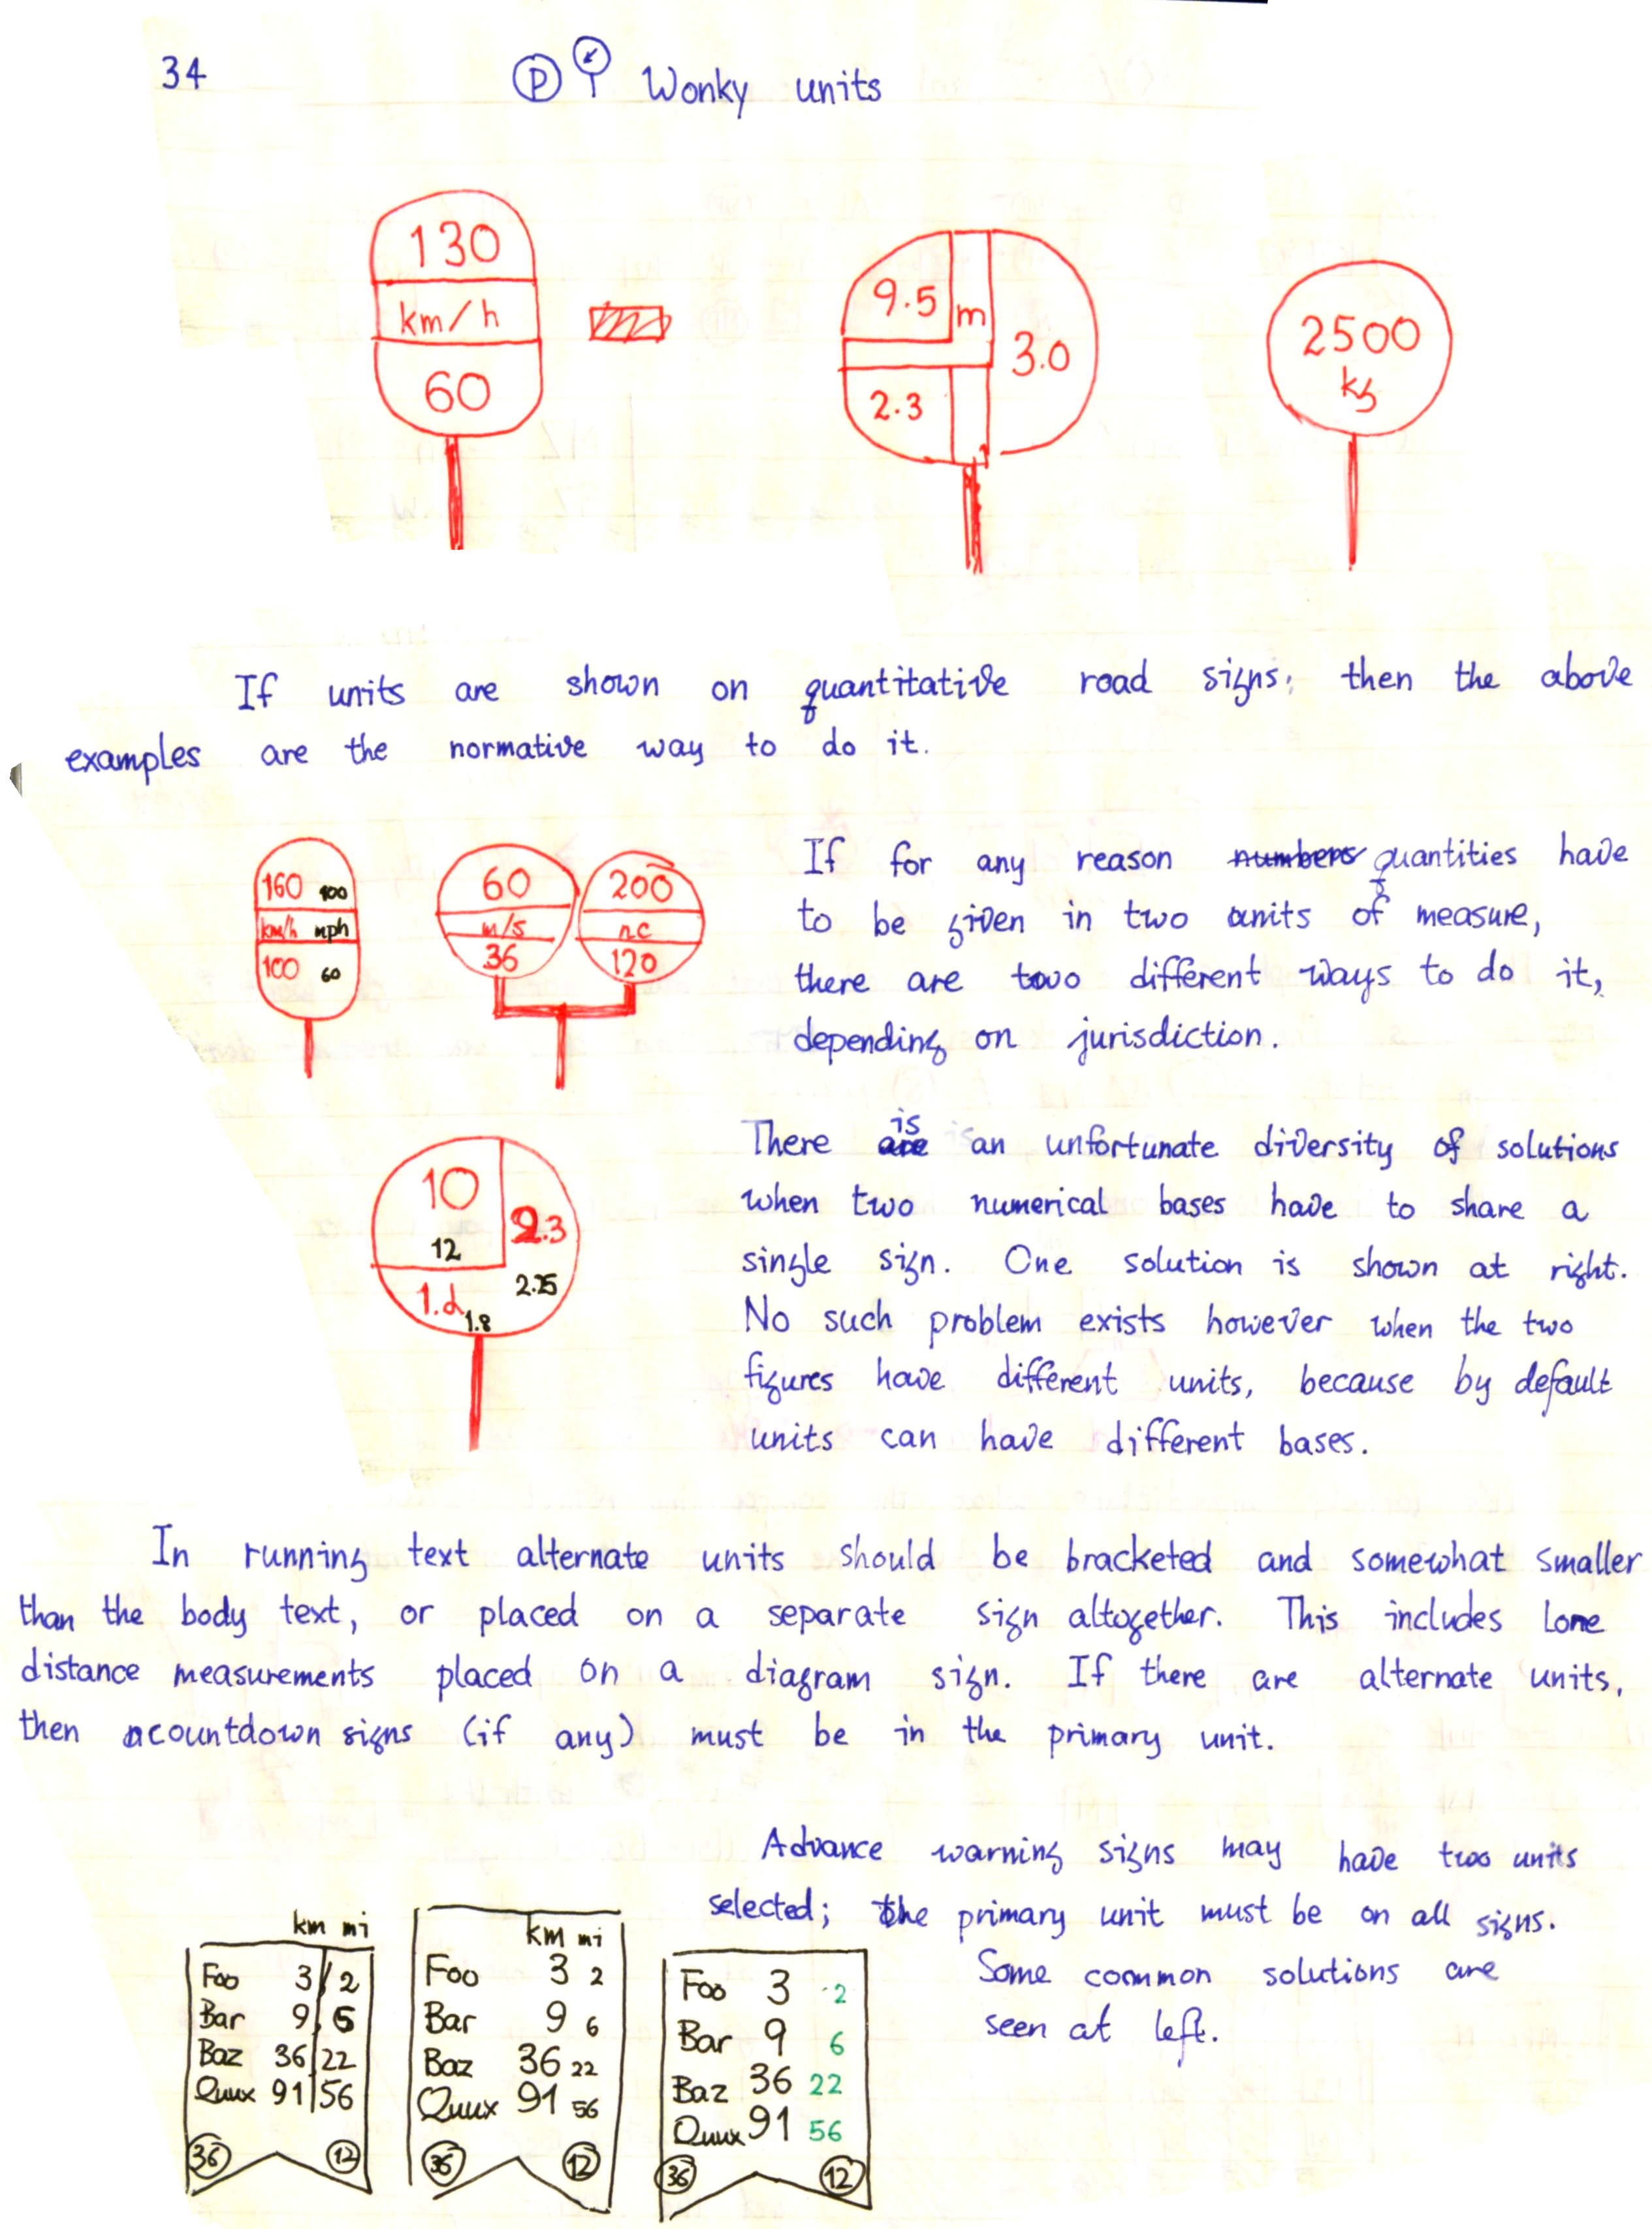 34
P Wonky units
130
km/h
60
9.5 m
3.0
2.3
2500
kg
If units are shown on quantitative road signs, then the above
examples are the normative way to do it.
160 100
km/h mph
100 60
60
m/s
36
200
nc
120
If for any reason numbers quantities have
to be given in two units of measure,
there are two different ways to do it,
depending on jurisdiction.
10
12
2.3
2.25
1.d
1.8
There are is an unfortunate diversity of solutions
when two numerical bases have to share a
single sign. One solution is shown at right.
No such problem exists however when the two
figures have different units, because by default
units can have different bases.
In running text alternate units should be bracketed and somewhat smaller
than the body text, or placed on a separate sign altogether. This includes lone
distance measurements placed on a diagram sign. If there are alternate units,
then countdown signs (if any) must be in the primary unit.
Advance warning signs may have two units
selected; the primary unit must be on all signs.
Some common solutions are
seen at left.
km mi
Foo 3/2
Bar 9 6
Baz 36 22
Quux 91 56
36 12
km mi
Foo 3 2
Bar 9 6
Baz 36 22
Quux 91 56
36 12
Foo 3 2
Bar 9 6
Baz 36 22
Quux 91 56
36 12